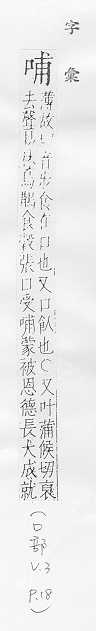 字彙
哺
薄故切音步食在口也又口飲也○又叶蒲候切裒
去聲易林烏鵲食穀張口受哺蒙被恩德長大成就
(口部
V.3
P.18)